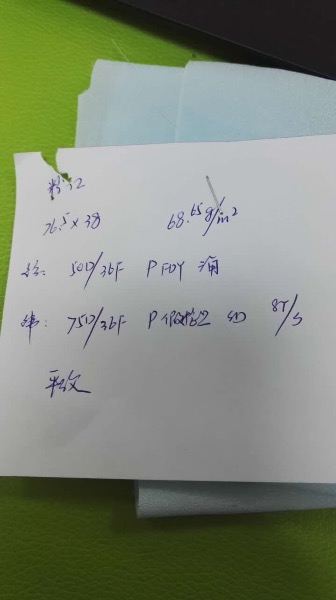 粉红
76.5×38 68.65g/m²
经: 50D/36F P FDY 涤
纬: 75D/36F P 假捻 SD 8T/S
平纹